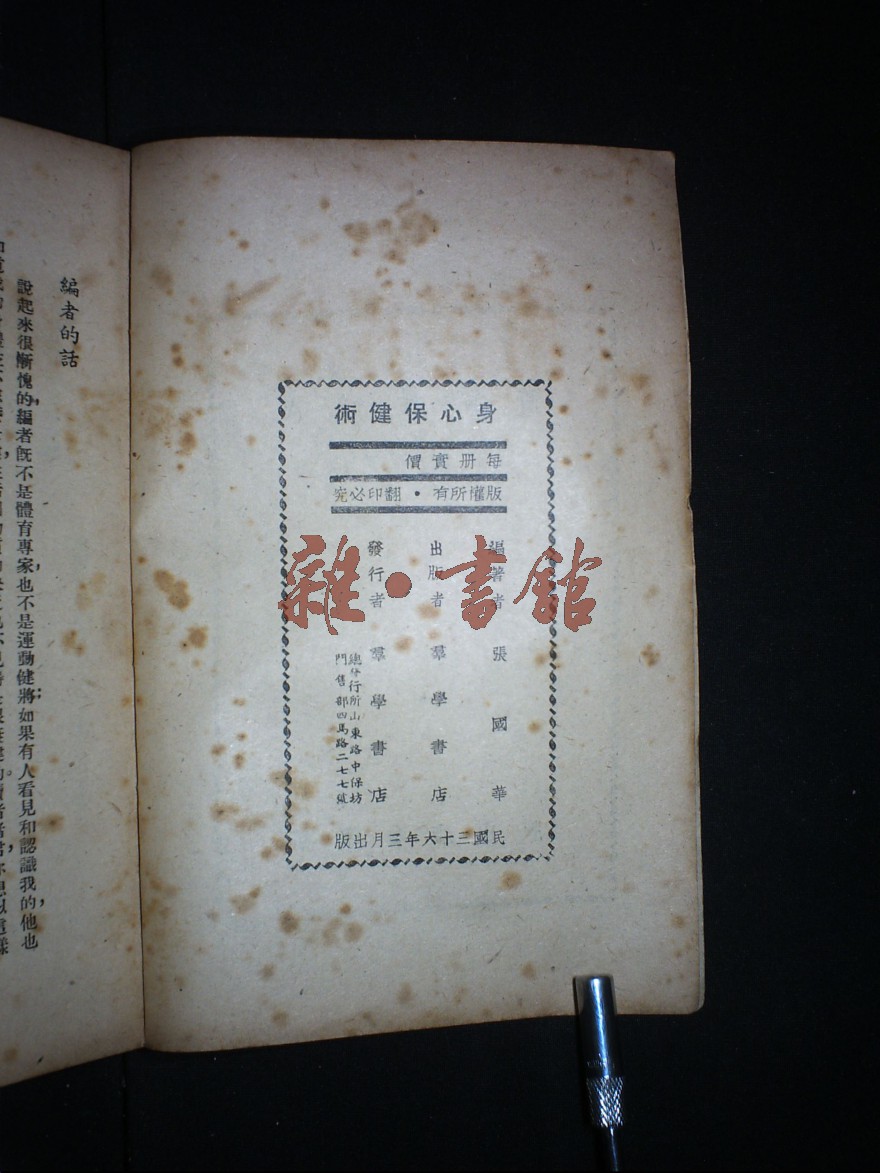 身心保健術
每册實價
版權所有・翻印必究
編著者 張國華
出版者 羣學書店
發行者 羣學書店
總發行所山東路中保坊
門售部四馬路二七七號
民國三十六年三月出版
雜・書館
編者的話
說起來很慚愧的，編者既不是體育專家，也不是運動健將；如果有人看見和認識我的，他也